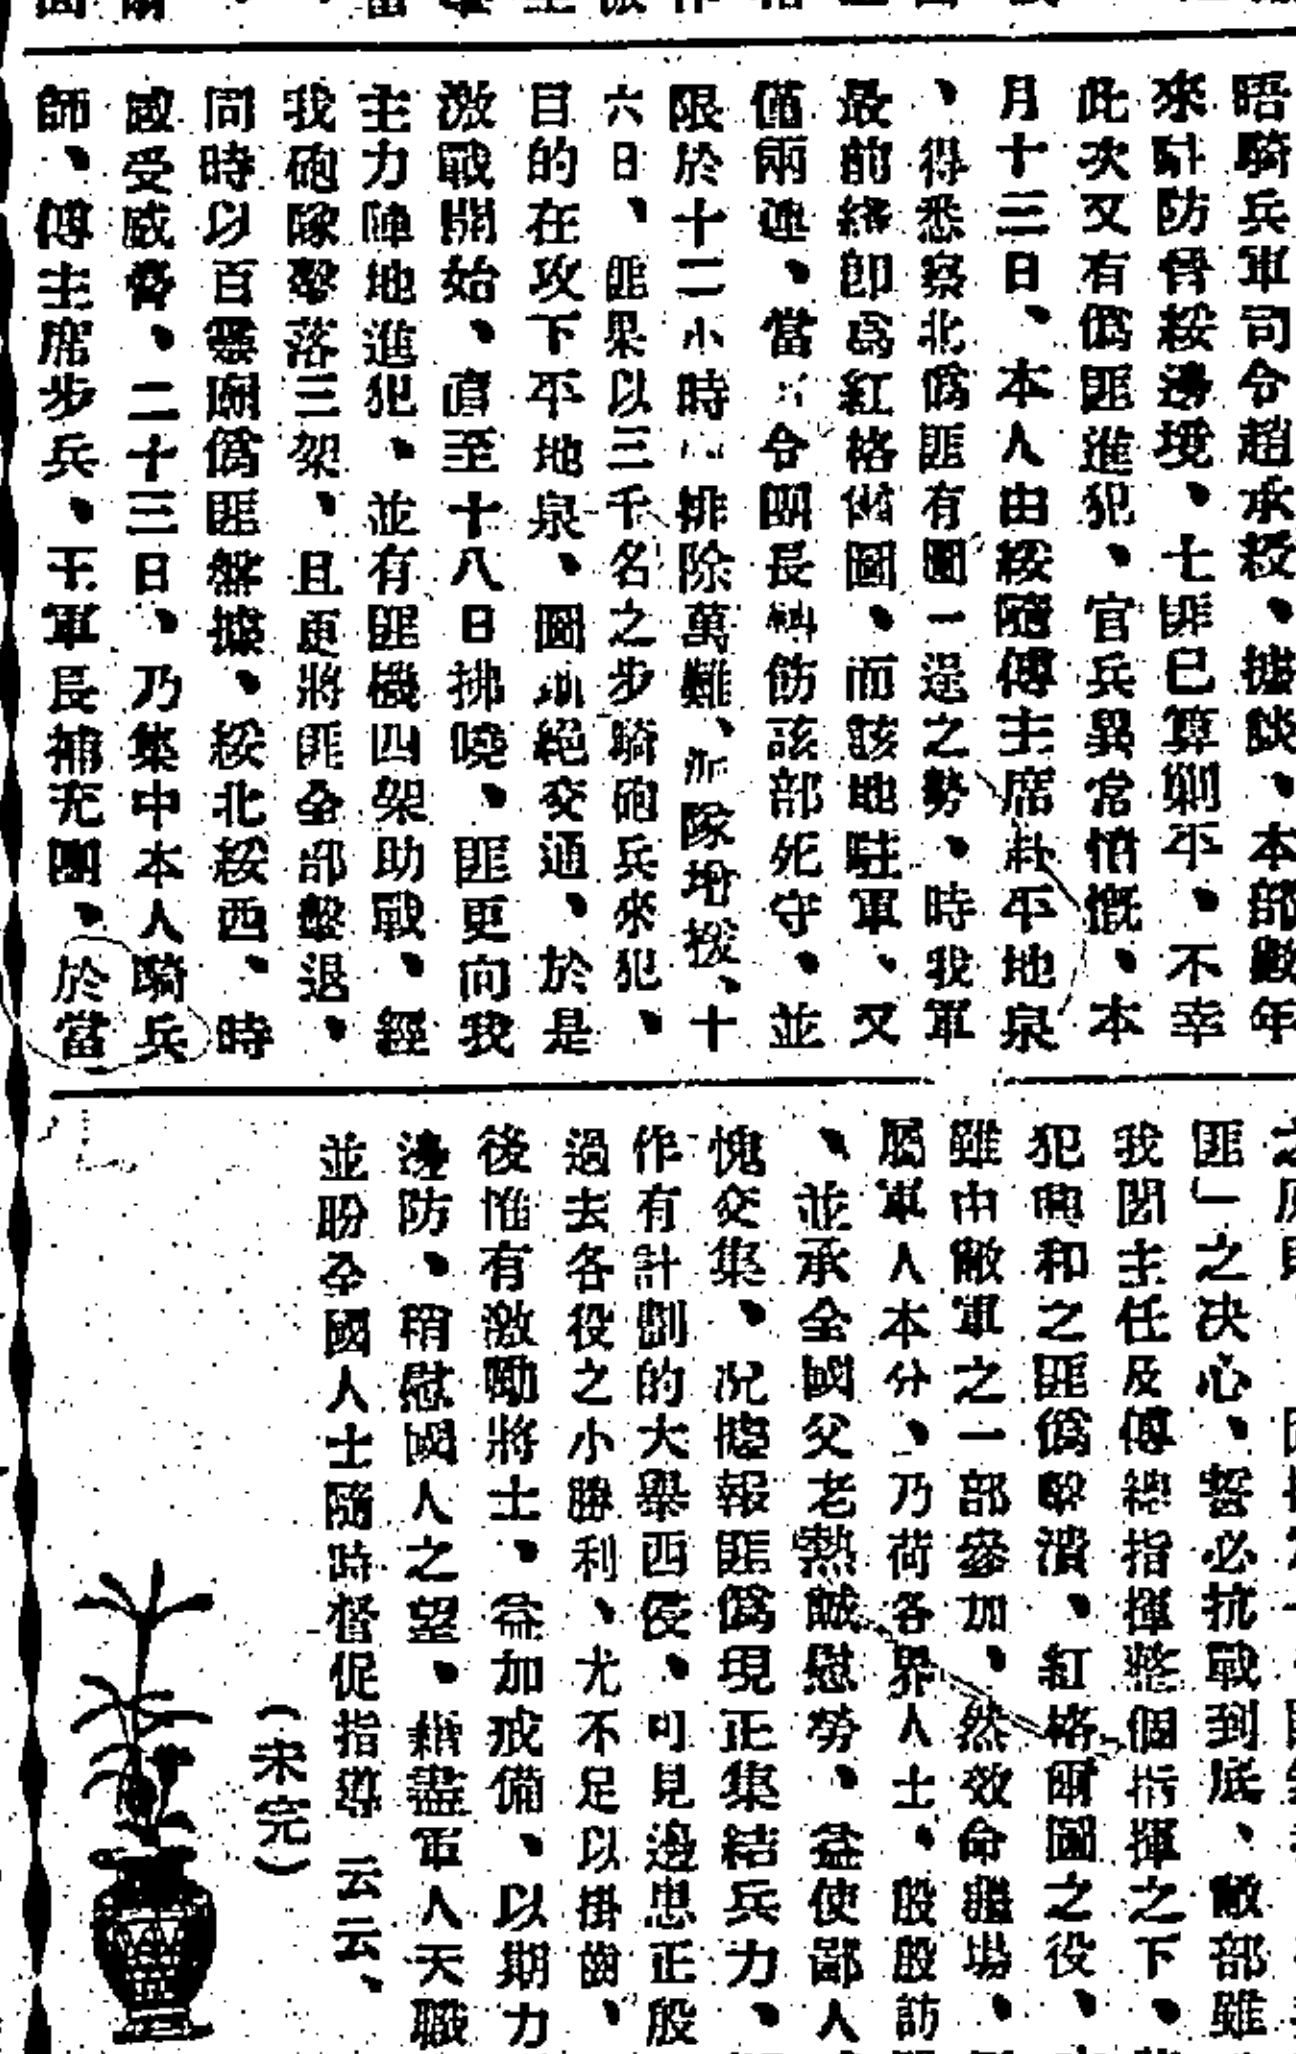 晤騎兵軍司令趙承綬、據談、本部數年
來駐防晉綏邊境、七匪已算剿平、不幸
此次又有僞匪進犯、官兵異常憤慨、本
月十三日、本人由綏隨傅主席赴平地泉
、得悉察北僞匪有圖一逞之勢、時我軍
最前綫卽爲紅格爾圖、而該地駐軍、又
僅兩連、當令團長飭該部死守、並
限於十二小時排除萬難、派隊增援、十
六日、匪果以三千名之步騎砲兵來犯、
目的在攻下平地泉、圖絕交通、於是
激戰開始、直至十八日拂曉、匪更向我
主力陣地進犯、並有匪機四架助戰、經
我砲隊擊落三架、且更將匪全部擊退、
同時以百靈廟僞匪盤據、綏北綏西、時
感受威脅、二十三日、乃集中本人騎兵
師、傅主席步兵、王軍長補充團、於當
匪」之決心、誓必抗戰到底、敝部雖
我閻主任及傅總指揮整個指揮之下、
犯興和之匪僞擊潰、紅格爾圖之役、
雖由敝軍之一部參加、然效命疆場、
屬軍人本分、乃荷各界人士、殷殷訪
、並承全國父老熱誠慰勞、益使鄙人
愧交集、况據報匪僞現正集結兵力、
作有計劃的大舉西侵、可見邊患正殷
過去各役之小勝利、尤不足以掛齒、
後惟有激勵將士、益加戒備、以期力
邊防、稍慰國人之望、藉盡軍人天職
並盼全國人士隨時督促指導云云、
(未完)